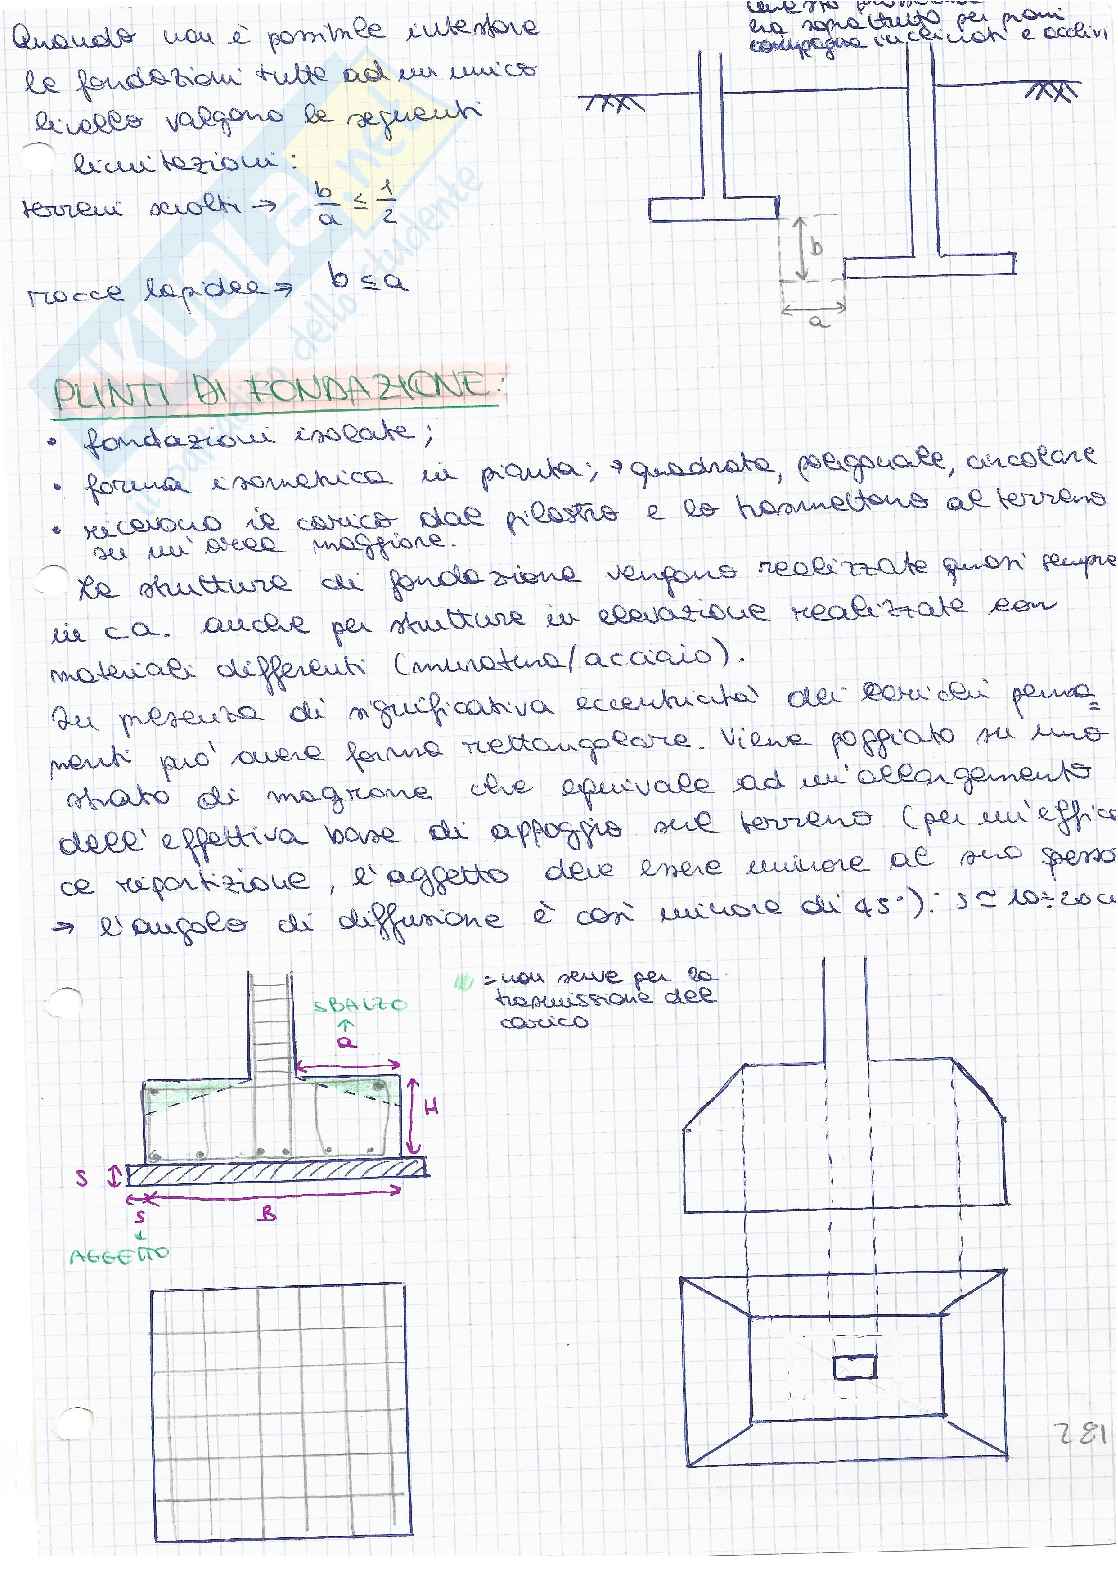 ha soprattutto per piani
campagna inclinati e acclivi
Quando non è possibile intestare
le fondazioni tutte ad un unico
livello valgono le seguenti
limitazioni:
terreni sciolti → b/a ≤ 1/2
rocce lapidee → b ≤ a
b
a
SKUOLA.net
il paradiso dello studente
PLINTI DI FONDAZIONE:
• fondazioni isolate;
• forma isometrica in pianta; → quadrata, poligonale, circolare
• ricevono il carico dal pilastro e lo trasmettono al terreno
su un'area maggiore.
Le strutture di fondazione vengono realizzate quasi sempre
in c.a. anche per strutture in elevazione realizzate con
materiali differenti (muratura/acciaio).
In presenza di significativa eccentricità dei carichi perma=
nenti può avere forma rettangolare. Viene poggiato su uno
strato di magrone che equivale ad un'allargamento
dell'effettiva base di appoggio sul terreno (per un'effica
ce ripartizione, l'aggetto deve essere minore al suo spesso
→ l'angolo di diffusione è così minore di 45°). s ≃ 10÷20 c
= non serve per la
trasmissione del
carico
SBALZO
a
H
S
S
B
AGGETTO
132